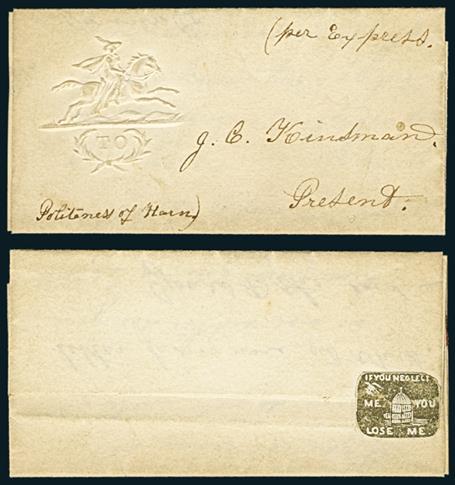 (per Express.
TO
J. C. Kindman.
Present.
Politeness of Harn)
IF YOU NEGLECT
ME YOU
LOSE ME